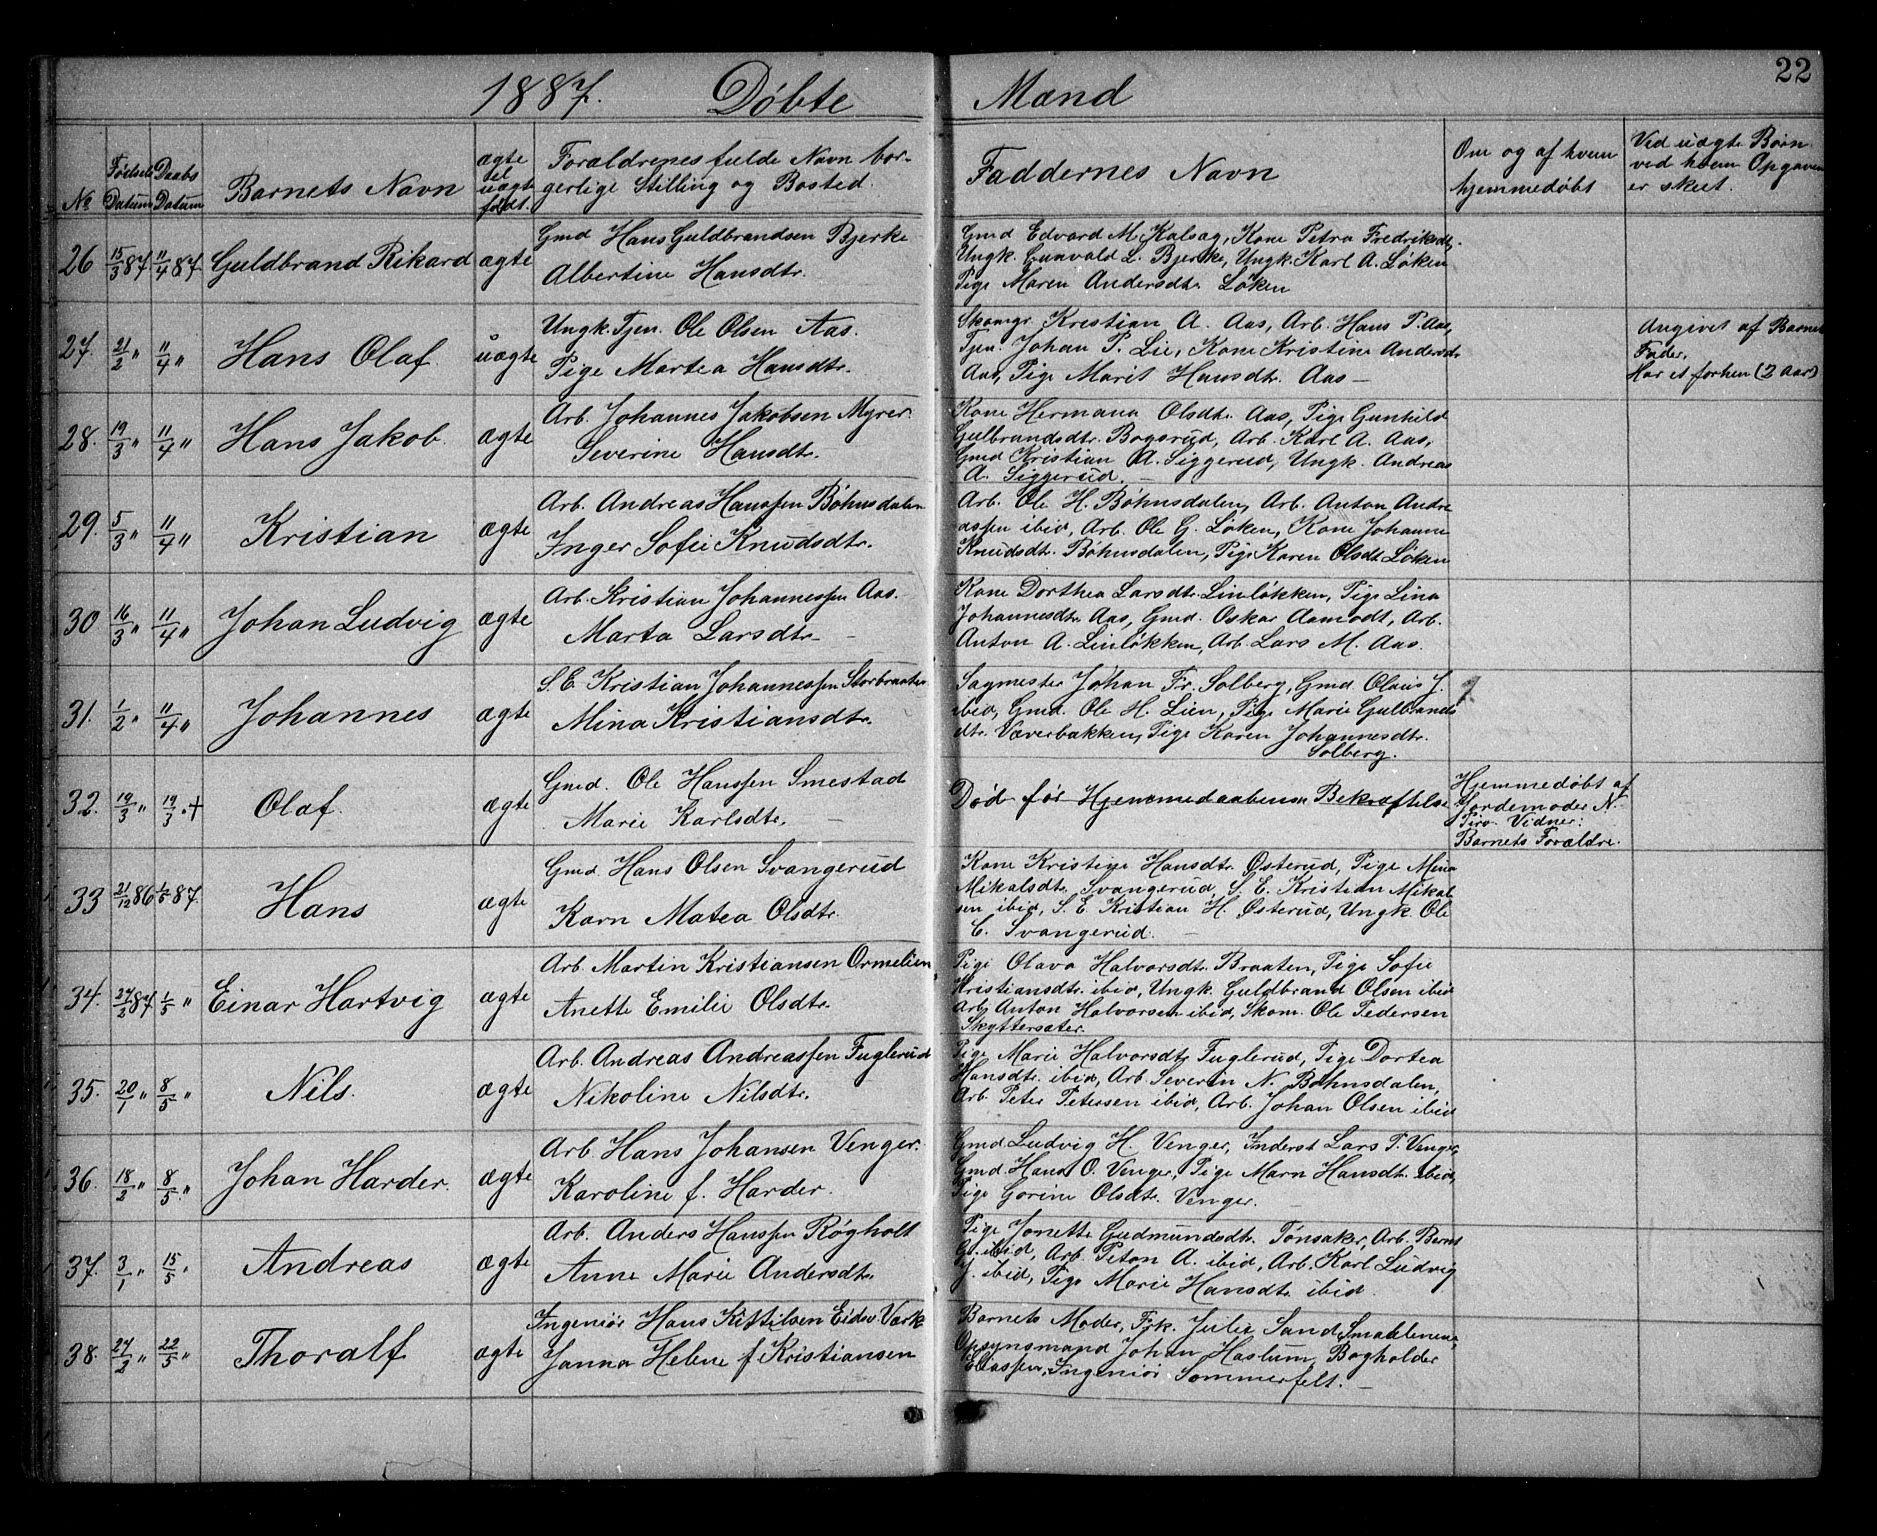 1887. Døbte Mænd 22
№ Fødsels Datum Daabs Datum Barnets Navn ægte el uægte født. Forældrenes fulde Navn borgerlige Stilling og Bosted. Faddernes Navn Om og af hvem hjemmedøbt Ved uægte Børn ved hvem Opgaven er skeet.
26 15/3 87 11/4 87 Guldbrand Rikard ægte
Gmd Hans Guldbrandsen Bjerke
Albertine Hansdtr.
Gmd Edvard M. Kalsag, Kone Petra Fredriksdtr.
Ungk. Gunvald L. Bjerke, Ungk. Karl A. Løken
Pige Maren Andersdtr Løken
27. 21/2 " 11/4 " Hans Olaf. uægte
Ungk. Tjen. Ole Olsen Aas.
Pige Martea Hansdtr.
Skomgr Kristian A. Aas, Arb. Hans P. Aas,
Tjen. Johan P. Lie, Kone Kristine Andersdtr
Aas, Pige Marit Hansdtr. Aas —
Angivet af Barnets
Fader.
Har et forhen (2 Aar)
28. 19/3 " 11/4 " Hans Jakob. ægte
Arb. Johannes Jakobsen Myrer.
Severine Hansdtr.
Kone Hermana Olsdtr. Aas, Pige Gunhild
Gulbrandsdtr. Bogsrud, Arb. Karl A. Aas,
Gmd Kristian A. Siggerud, Ungk. Andreas
A. Siggerud. —
29. 5/3 " 11/4 " Kristian ægte
Arb. Andreas Hanssen Bøhnsdalen
Inger Sofie Knudsdtr.
Arb. Ole H. Bøhnsdalen, Arb. Anton Andre
assen ibid, Arb. Ole G. Løken, Kone Johanne
Knudsdt. Bøhnsdalen, Pige Karen Olsdt. Løken
30 16/3 " 11/4 " Johan Ludvig ægte
Arb. Kristian Johannessen Aas.
Marta Larsdtr. —
Kone Dorthea Larsdtr. Linløkken, Pige Lina
Johannesdtr. Aas, Gmd. Oskar Aamodt, Arb.
Anton A. Linløkken, Arb. Lars M. Aas.
31. 1/2 11/4 " Johannes ægte
S. E. Kristian Johannessen Storbraaten
Mina Kristiansdtr.
Sagmester Johan Fr. Solberg, Gmd. Olaus J.
ibid, Gmd. Ole H. Lien, Pige Marie Gulbrands
dtr. Væverbakken, Pige Karen Johannesdtr.
Solberg.
32. 19/3 " 19/3 . + Olaf. ægte
Gmd. Ole Hanssen Smestad
Marie Karlsdtr.
Død før Hjemmedaabens Bekræftelse
Hjemmedøbt af
Jordemoder N.
Piro. Vidner:
Barnets Forældre.
33 21/12 86 1/5 87. Hans ægte
Gmd. Hans Olsen Svangerud
Karn Matea Olsdtr.
Kone Kristine Hansdtr. Østerud, Pige Mina
Mikalsdtr. Svangerud, S. E. Kristian Mikal
sen ibid, S. E. Kristian H. Østerud, Ungk. Ole
C. Svangerud. —
34. 27/2 87 1/5 " Einar Hartvig ægte
Arb. Martin Kristiansen Ormelien
Anette Emilie Olsdtr.
Pige Olava Halvorsdtr. Braaten, Pige Sofie
Kristiansdtr. ibid, Ungk. Guldbrand Olsen ibid
Arb. Anton Halvorsen ibid, Skom. Ole Pedersen
Skyttersæter.
35. 20/1 " 8/5 " Nils. ægte
Arb. Andreas Andreassen Fuglerud
Nikoline Nilsdtr.
Pige Marie Halvorsdtr. Fuglerud, Pige Dortea
Hansdtr. ibid, Arb. Severin N. Bøhnsdalen,
Arb. Peter Petersen ibid, Arb. Johan Olsen ibid
36. 18/2 " 8/5 " Johan Harder. ægte
Arb. Hans Johansen Venger.
Karoline f. Harder.
Gmd. Ludvig H. Venger, Inderst Lars P. Venger,
Gmd. Hans O. Venger, Pige Marn Hansdt. ibid,
Pige Gorine Olsdtr. Venger. —
37. 3/1 " 15/5 " Andreas ægte
Arb. Anders Hanssen Røgholt
Anne Marie Andersdtr.
Pige Jonette Gudmundsdt. Tønsaker, Arb. Bernt
G. ibid, Arb. Peton A. ibid, Arb. Karl Ludvig
J. ibid, Pige Marie Hansdtr. ibid.
38. 27/2 " 22/5 " Thoralf ægte
Ingeniør Hans Kittilsen Eidsv. Værk
Janna Helene f. Kristiansen
Barnets Moder, Frk. Julie Sand, Smaalenene,
Opsynsmand Johan Haslum, Bogholder
Eliassen, Ingeniør Sommerfelt. —